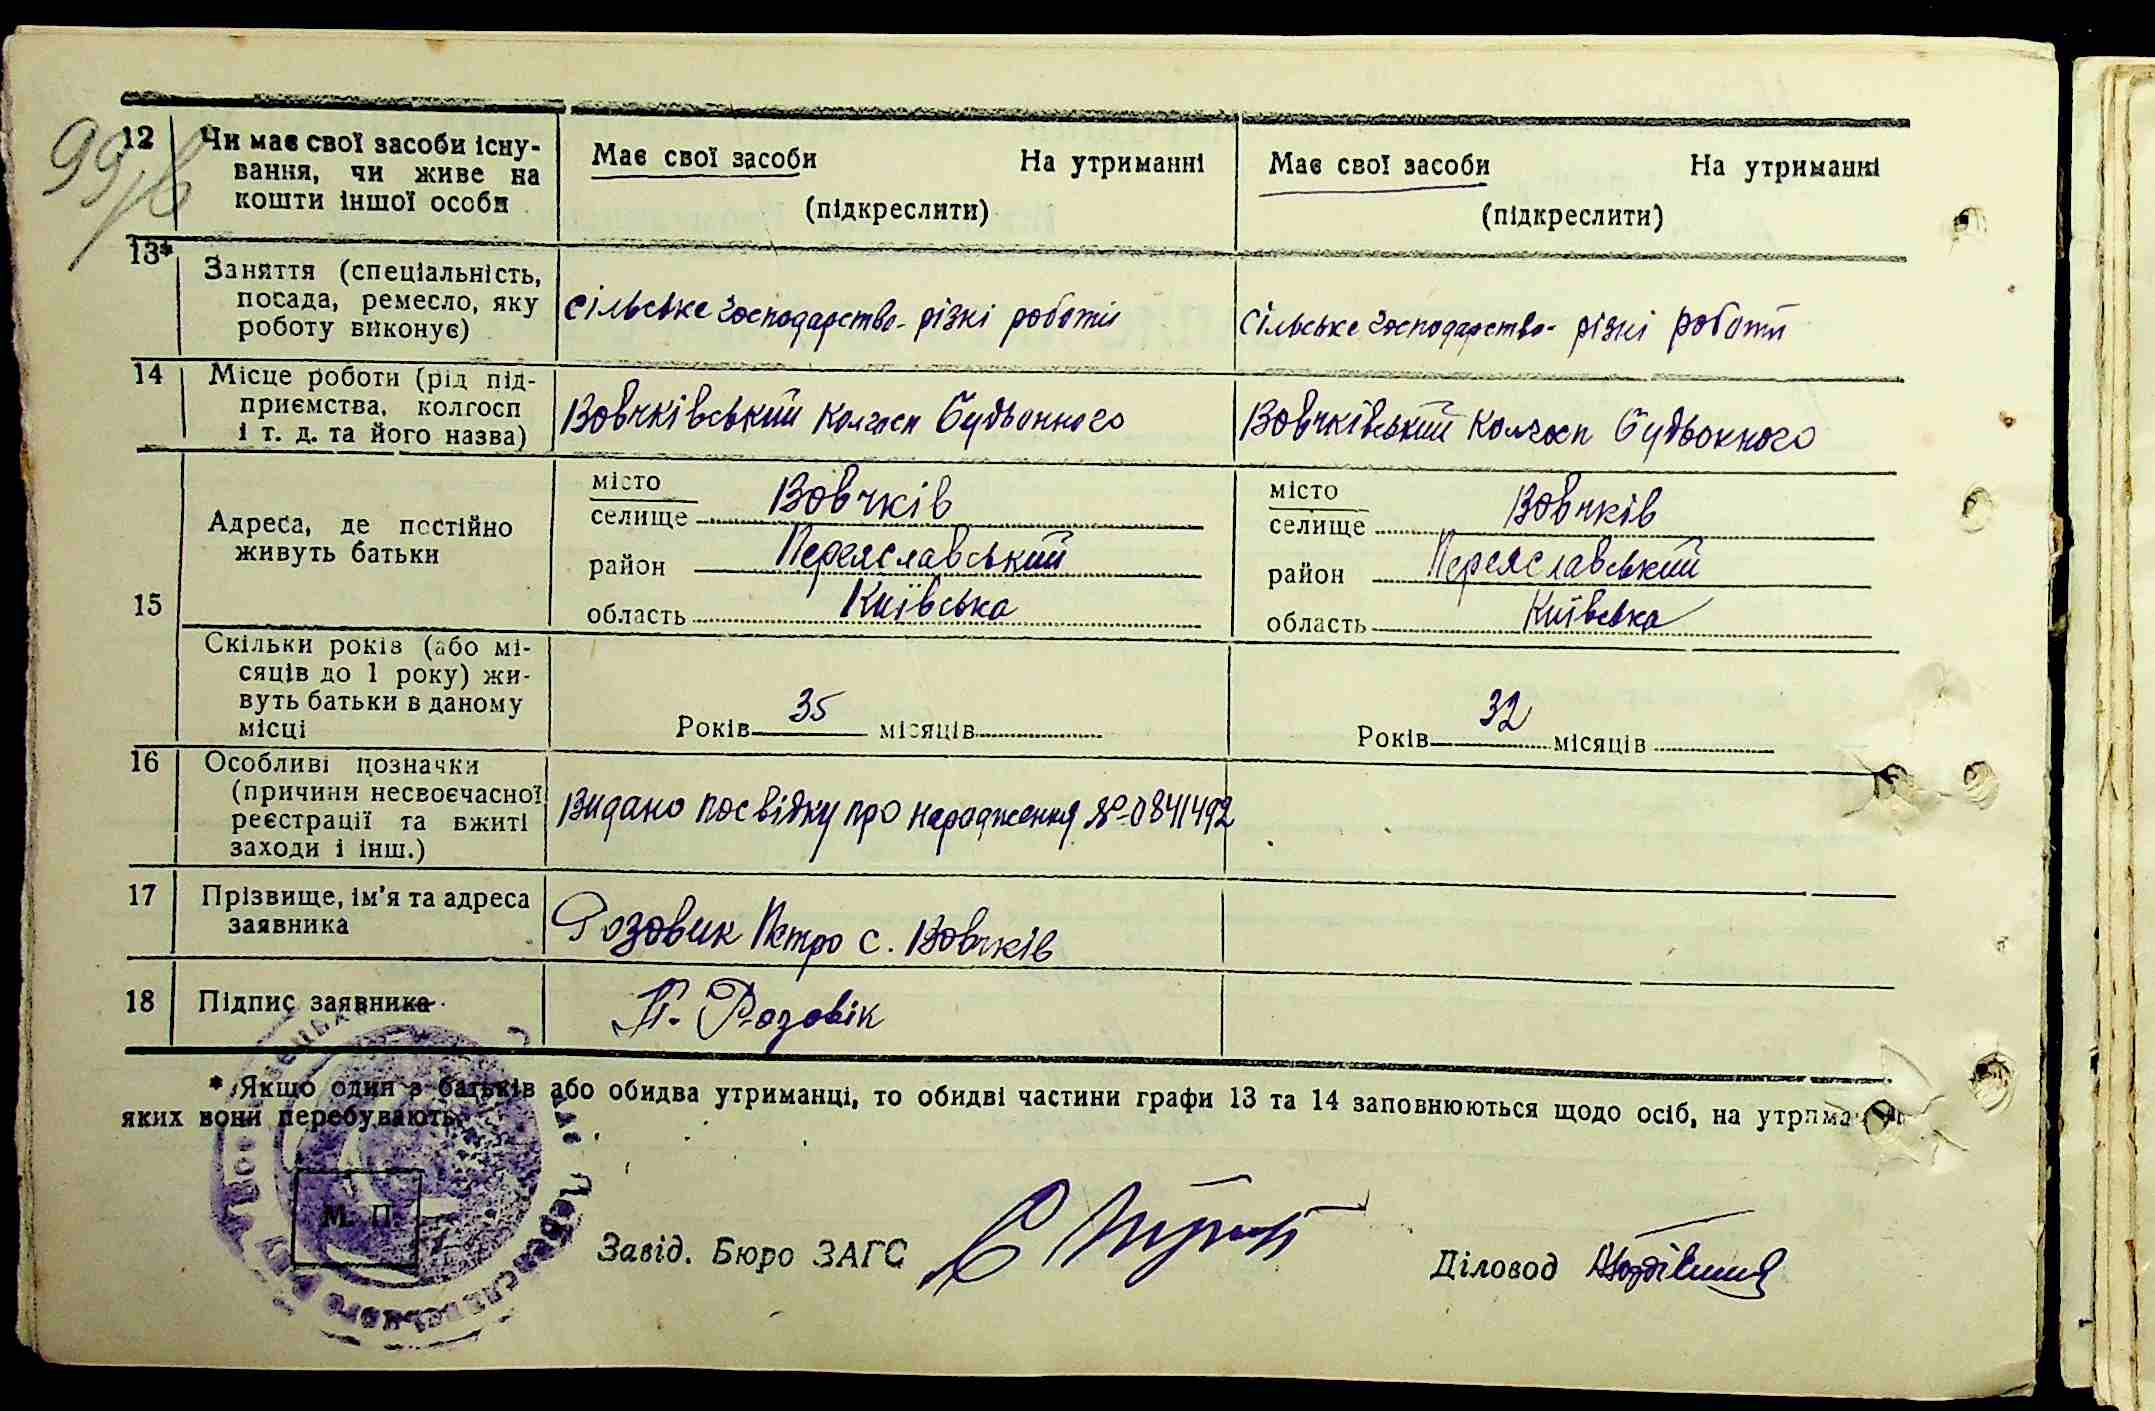 99/в
12 Чи має свої засоби існу-
вання, чи живе на
кошти іншої особи
Має свої засоби На утриманні
(підкреслити)
Має свої засоби На утриманні
(підкреслити)
13* Заняття (спеціальність,
посада, ремесло, яку
роботу виконує)
сільське господарство- різні роботи
сільське господарство- різні роботи
14 Місце роботи (рід під-
приємства, колгосп
і т. д. та його назва)
Вовчківський колгосп Будьонного
Вовчківський колгосп Будьонного
15 Адреса, де постійно
живуть батьки
місто
селище Вовчків
район Переяславський
область Київська
місто
селище Вовчків
район Переяславський
область Київська
Скільки років (або мі-
сяців до 1 року) жи-
вуть батьки в даному
місці
Років 35 місяців
Років 32 місяців
16 Особливі позначки
(причини несвоєчасної
реєстрації та вжиті
заходи і інш.)
Видано посвідку про народження № 0841492
17 Прізвище, ім'я та адреса
заявника
Розовик Петро с. Вовчків
18 Підпис заявника
П. Розовік
* Якщо один з батьків або обидва утриманці, то обидві частини графи 13 та 14 заповнюються щодо осіб, на
яких вони перебувають.
М. П.
Переяславського
Завід. Бюро ЗАГС
Діловод